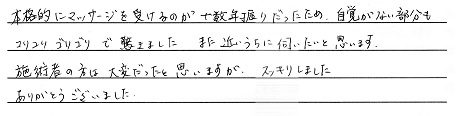 本格的にマッサージを受けるのが十数年振りだったため、自覚がない部分も
コリコリ ゴリゴリで驚きました また近いうちに伺いたいと思います.
施術者の方は大変だったと思いますが、スッキリしました
ありがとうございました.